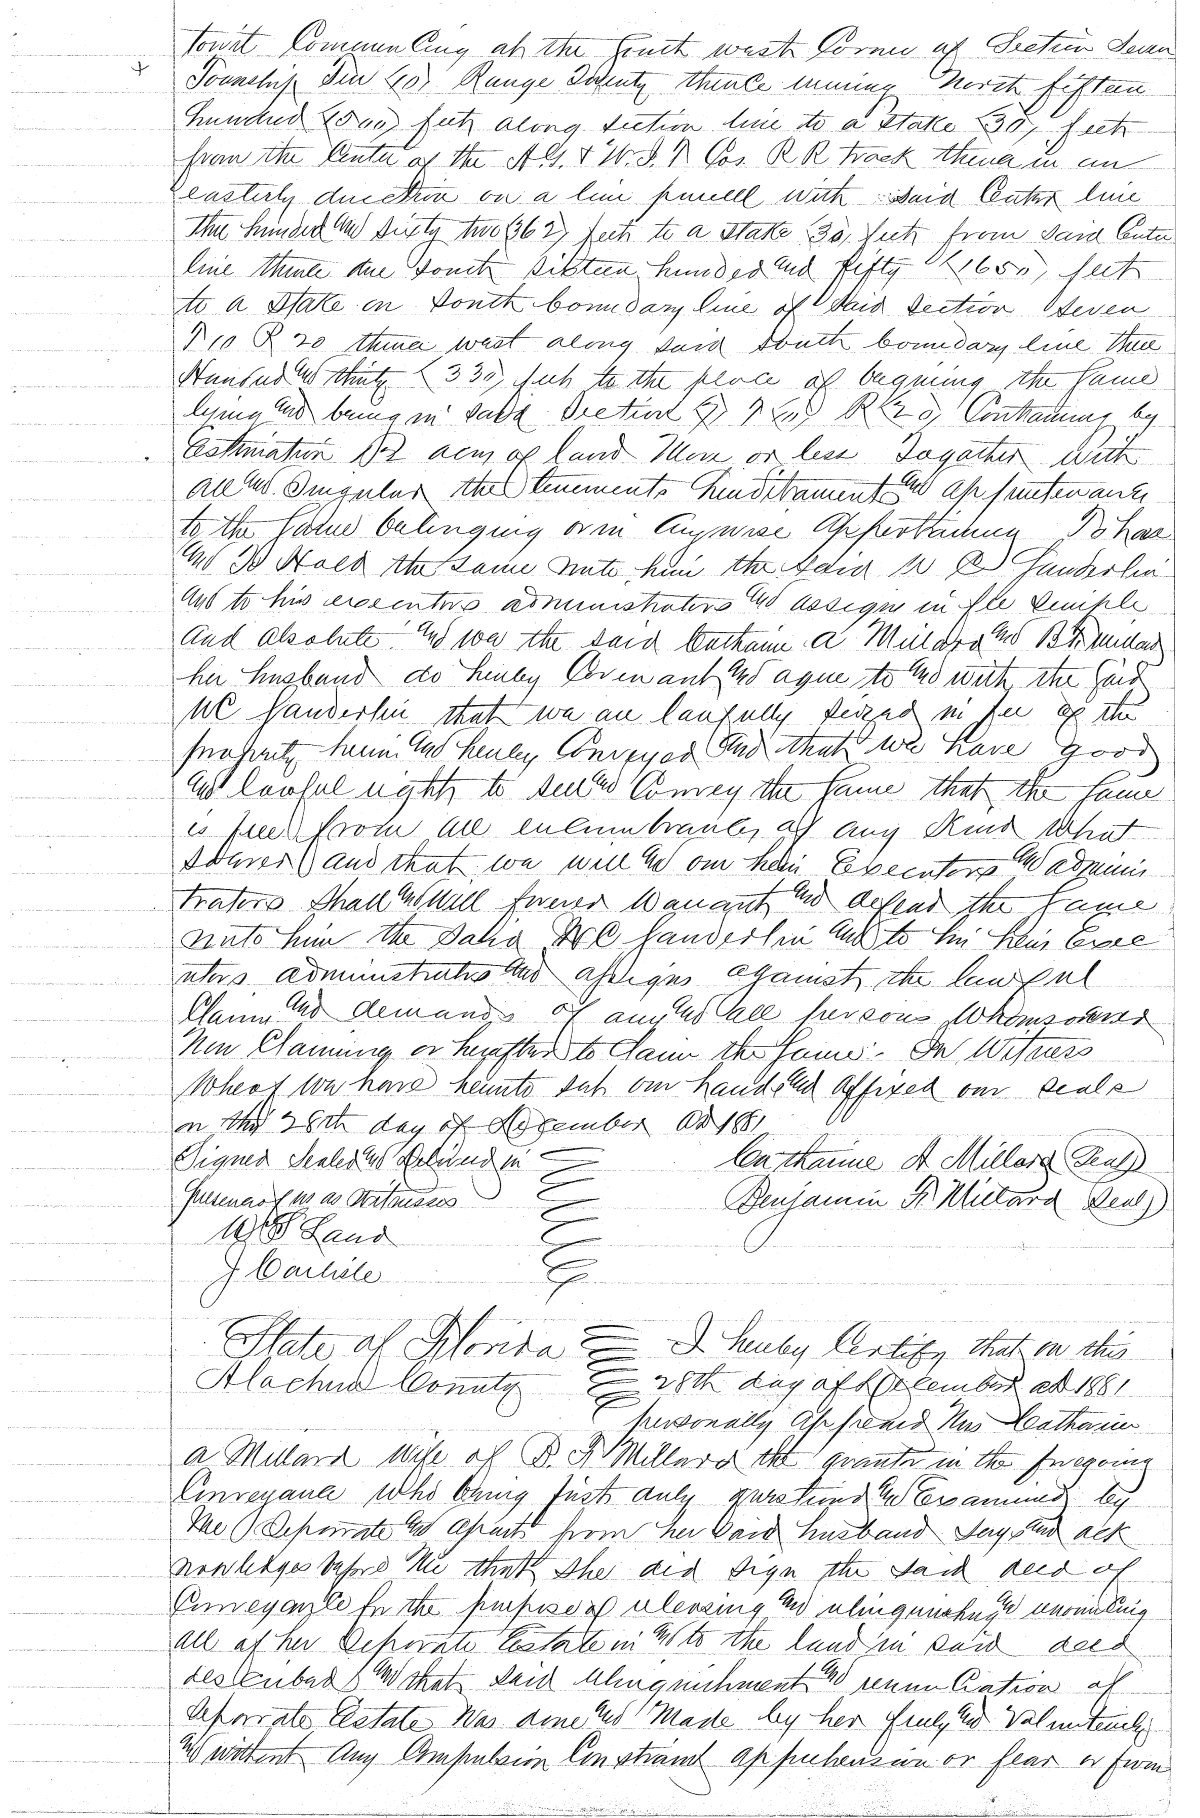 towit Commencing at the South west Corner of Section Seven
Township Ten (10) Range Twenty thence running North fifteen
hundred (1500) feet along Section line to a stake (30) feet
from the Center of the A.G. & W.I.T Cos. R R track thence in an
easterly direction on a line paralell with said Center line
three hundred and sixty two (362) feet to a stake (30) feet from said Center
line thence due South Sixteen hundred and fifty (1650) feet
to a stake on South boundary line of said Section Seven
T 10 R 20 thence west along said South boundary line three
Hundred and thirty (330) feet to the place of begining the Same
lying and being in said Section (7) T (10) R (20) Containing by
Estimation 12 acres of land More or less Togather with
all and Singular the tenements hereditaments and appurtenances
to the Same belonging or in Anywise Appertaining To have
and To Hold the Same unto him the said W C Sanderlin
and to his executors administrators and assigns in fee Simple
And absolute and we the said Catharine A Millard and B F Millard
her husband do hereby Covenant and agree to and with the Said
W C Sanderlin that we are lawfully seized in fee of the
property herein and hereby Conveyed and that we have good
and lawful right to sell and Convey the Same that the Same
is free from all encumbrances of any Kind What
soever and that we will and our heirs Executors and adminis
trators Shall and Will forever Warrant and defend the Same
unto him the Said W C Sanderlin and to his heirs Exec
utors administrators and assigns against the lawful
Claims and demands of any and all persons Whomsoever
Now Claiming or hereafter to Claim the Same. In Witness
Whereof We have hereunto Set our hands and affixed our seals
on this 28th day of December AD 1881
Signed Sealed and Delivered in Catharine A Millard (Seal)
presence of us as Witnesses Benjamin F. Millard (Seal)
Land
J Carlisle
State of Florida I hereby Certify that on this
Alachua County 28th day of December AD 1881
personally Appeared Mrs Catharine
A Millard wife of B. F. Millard the grantor in the foregoing
Conveyance Who being first duly questioned and Examined by
Me Seperate and apart from her Said husband Says and ack
nowledges before Me that She did Sign the Said deed of
Conveyance for the purpose of releasing and relinquishing and renouncing
all of her Seperate Estate in and to the land in said deed
described and that said relinquishment and renunciation of
Seperate Estate Was done and Made by her freely and Voluntarily
and without Any Compulsion Constraint apprehension or fear or from